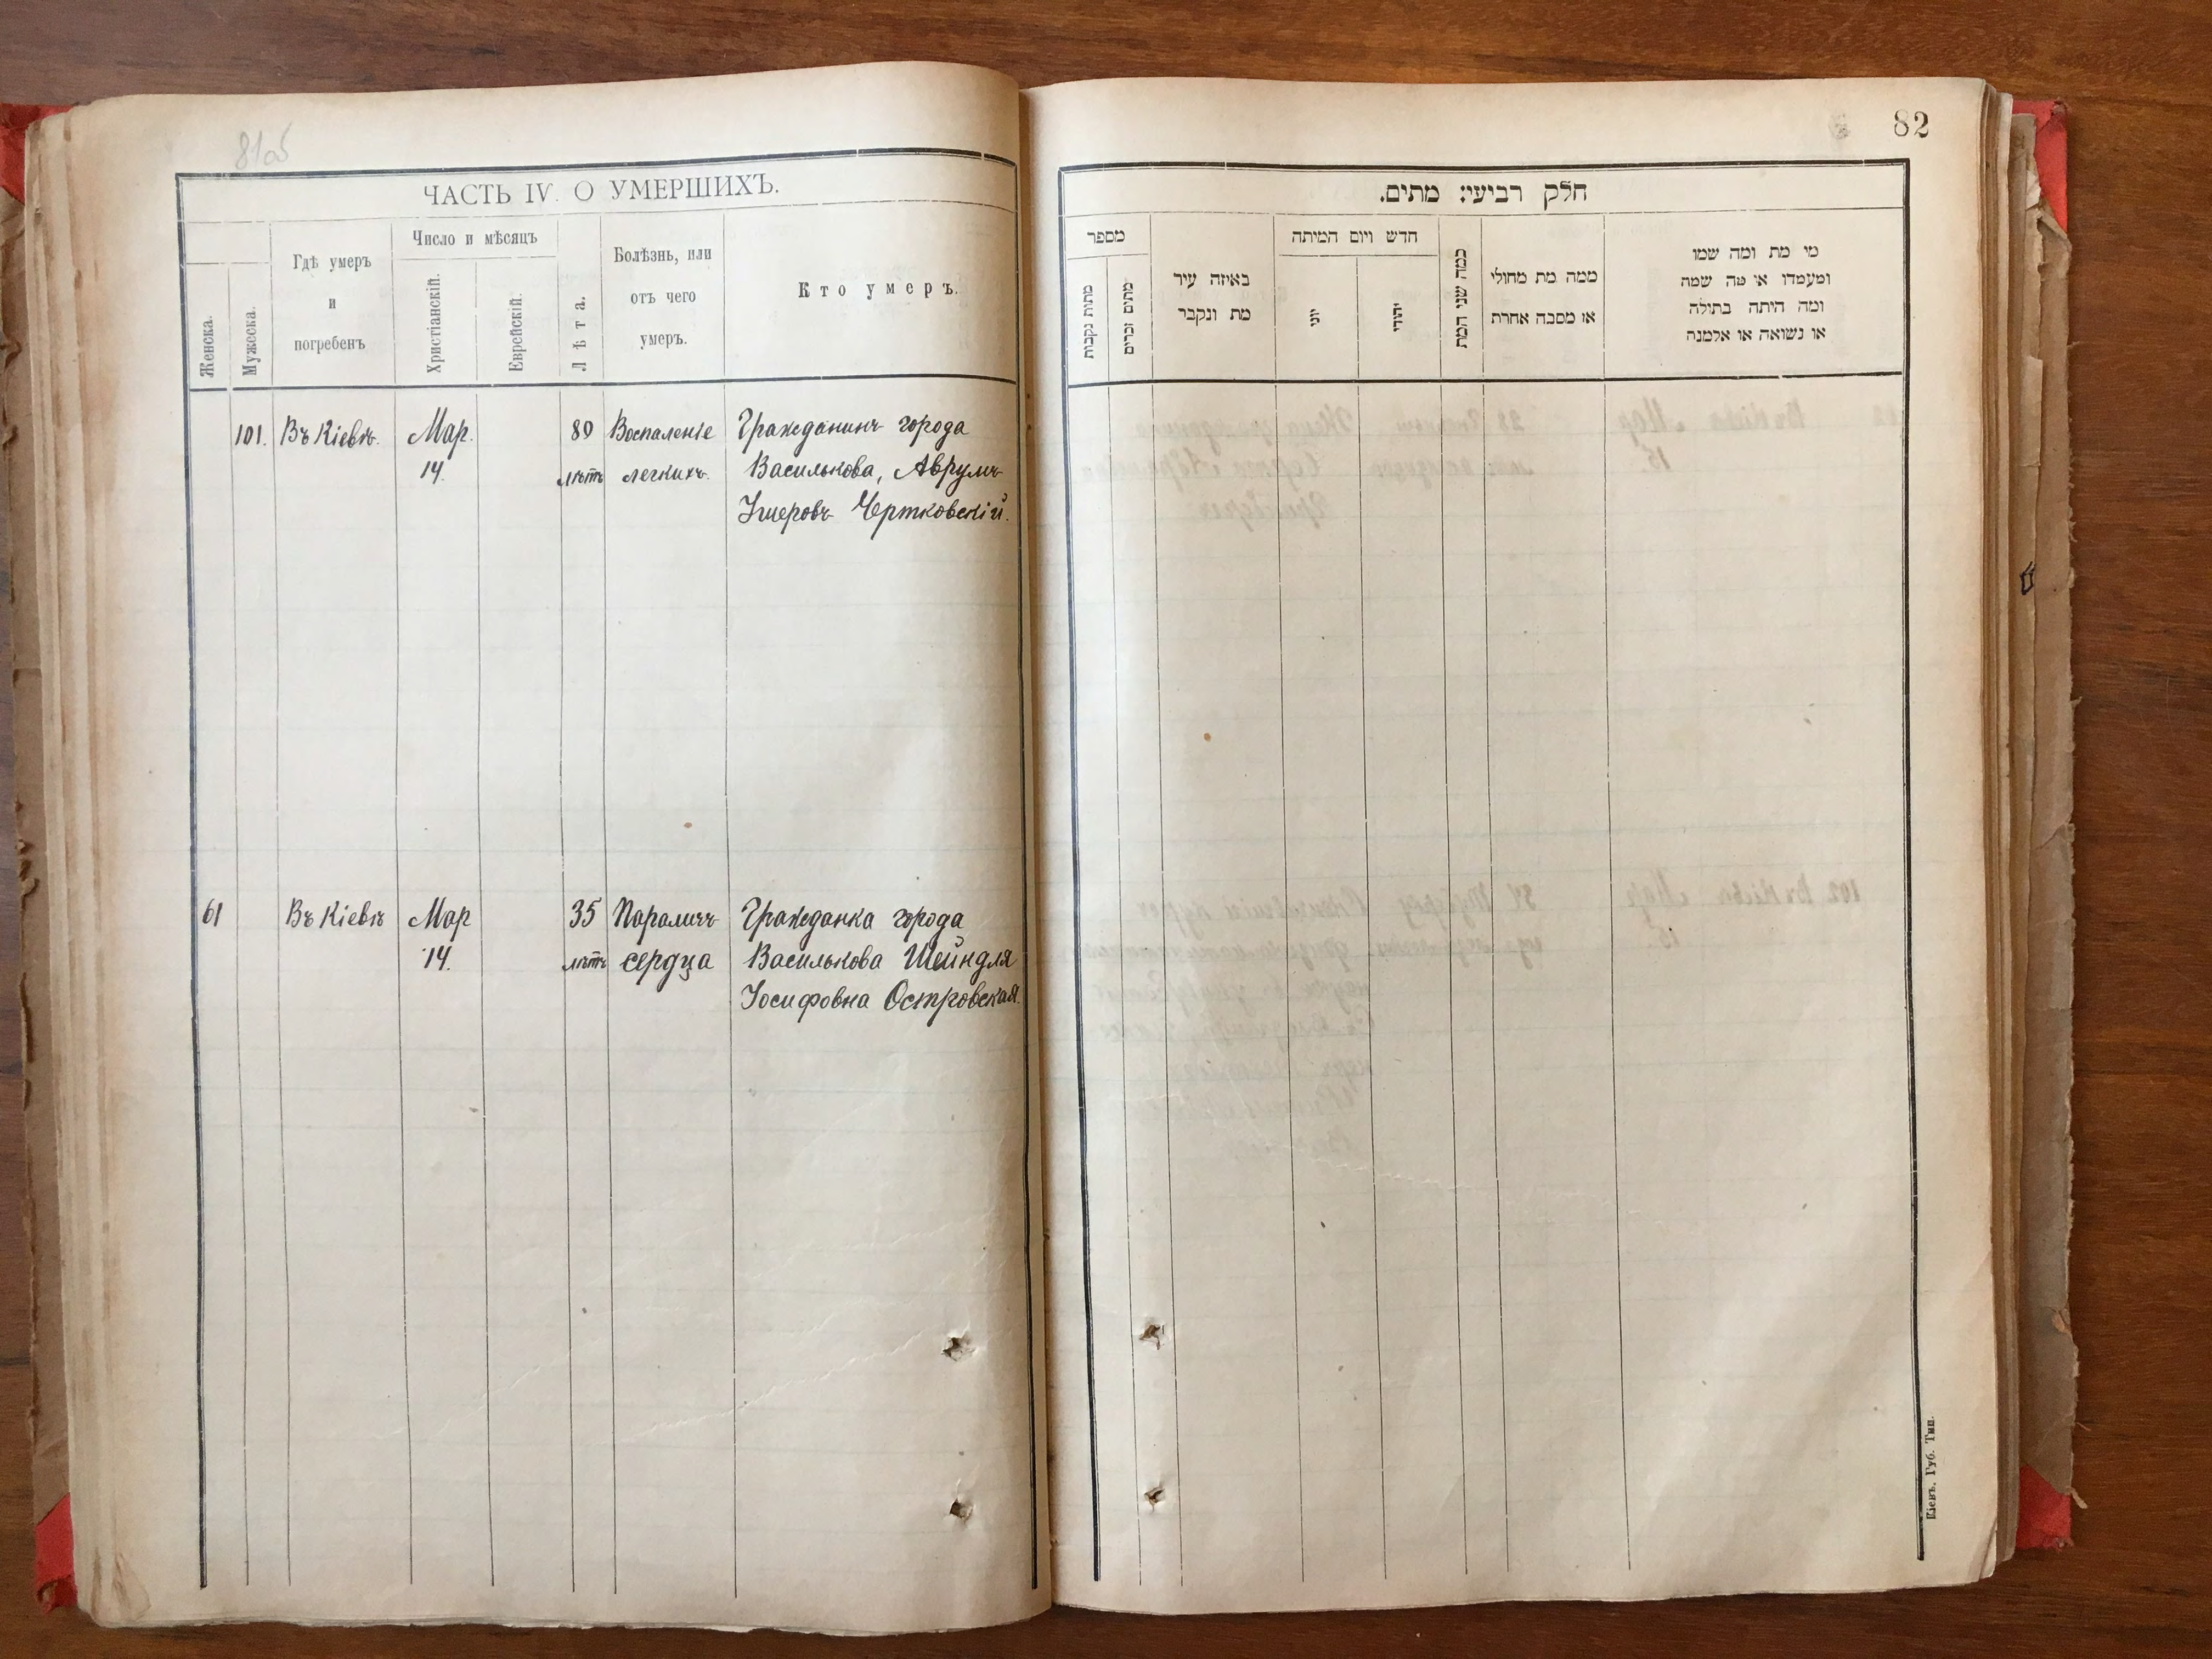 81об
ЧАСТЬ IV. О УМЕРШИХЪ.
Женска.
Мужеска.
Гдѣ умеръ
и
погребенъ
Число и мѣсяцъ
Христіанскій.
Еврейскій.
Лѣта.
Болѣзнь, или
отъ чего
умеръ.
Кто умеръ.
101. Въ Кіевѣ. Мар. 80 Воспаленіе Гражданинъ города
14. лѣтъ легкихъ. Василькова, Аврумъ
Чертковскій.
61 Въ Кіевѣ Мар 35 Параличъ Гражданка города
14. лѣтъ сердца Василькова Шейндля
Іосифовна Островская.
82
חלק רביעי: מתים.
מספר
מתות נקבות
מתים זכרים
באיזה עיר
מת ונקבר
חדש ויום המיתה
יוני
יהודי
כמה שני המת
ממה מת מחולי
או מסבה אחרת
מי מת ומה שמו
ומעמדו או מה שמה
ומה היתה בתולה
או נשואה או אלמנה
Кіевъ, Губ. Тип.